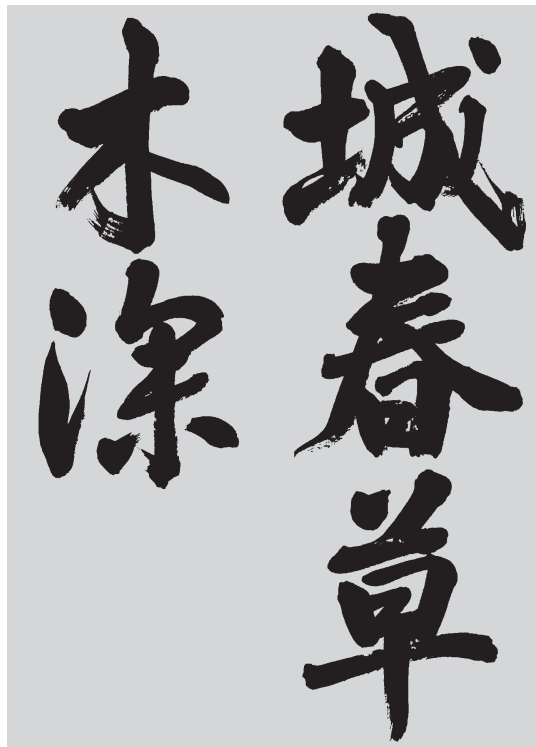 城春草
木深